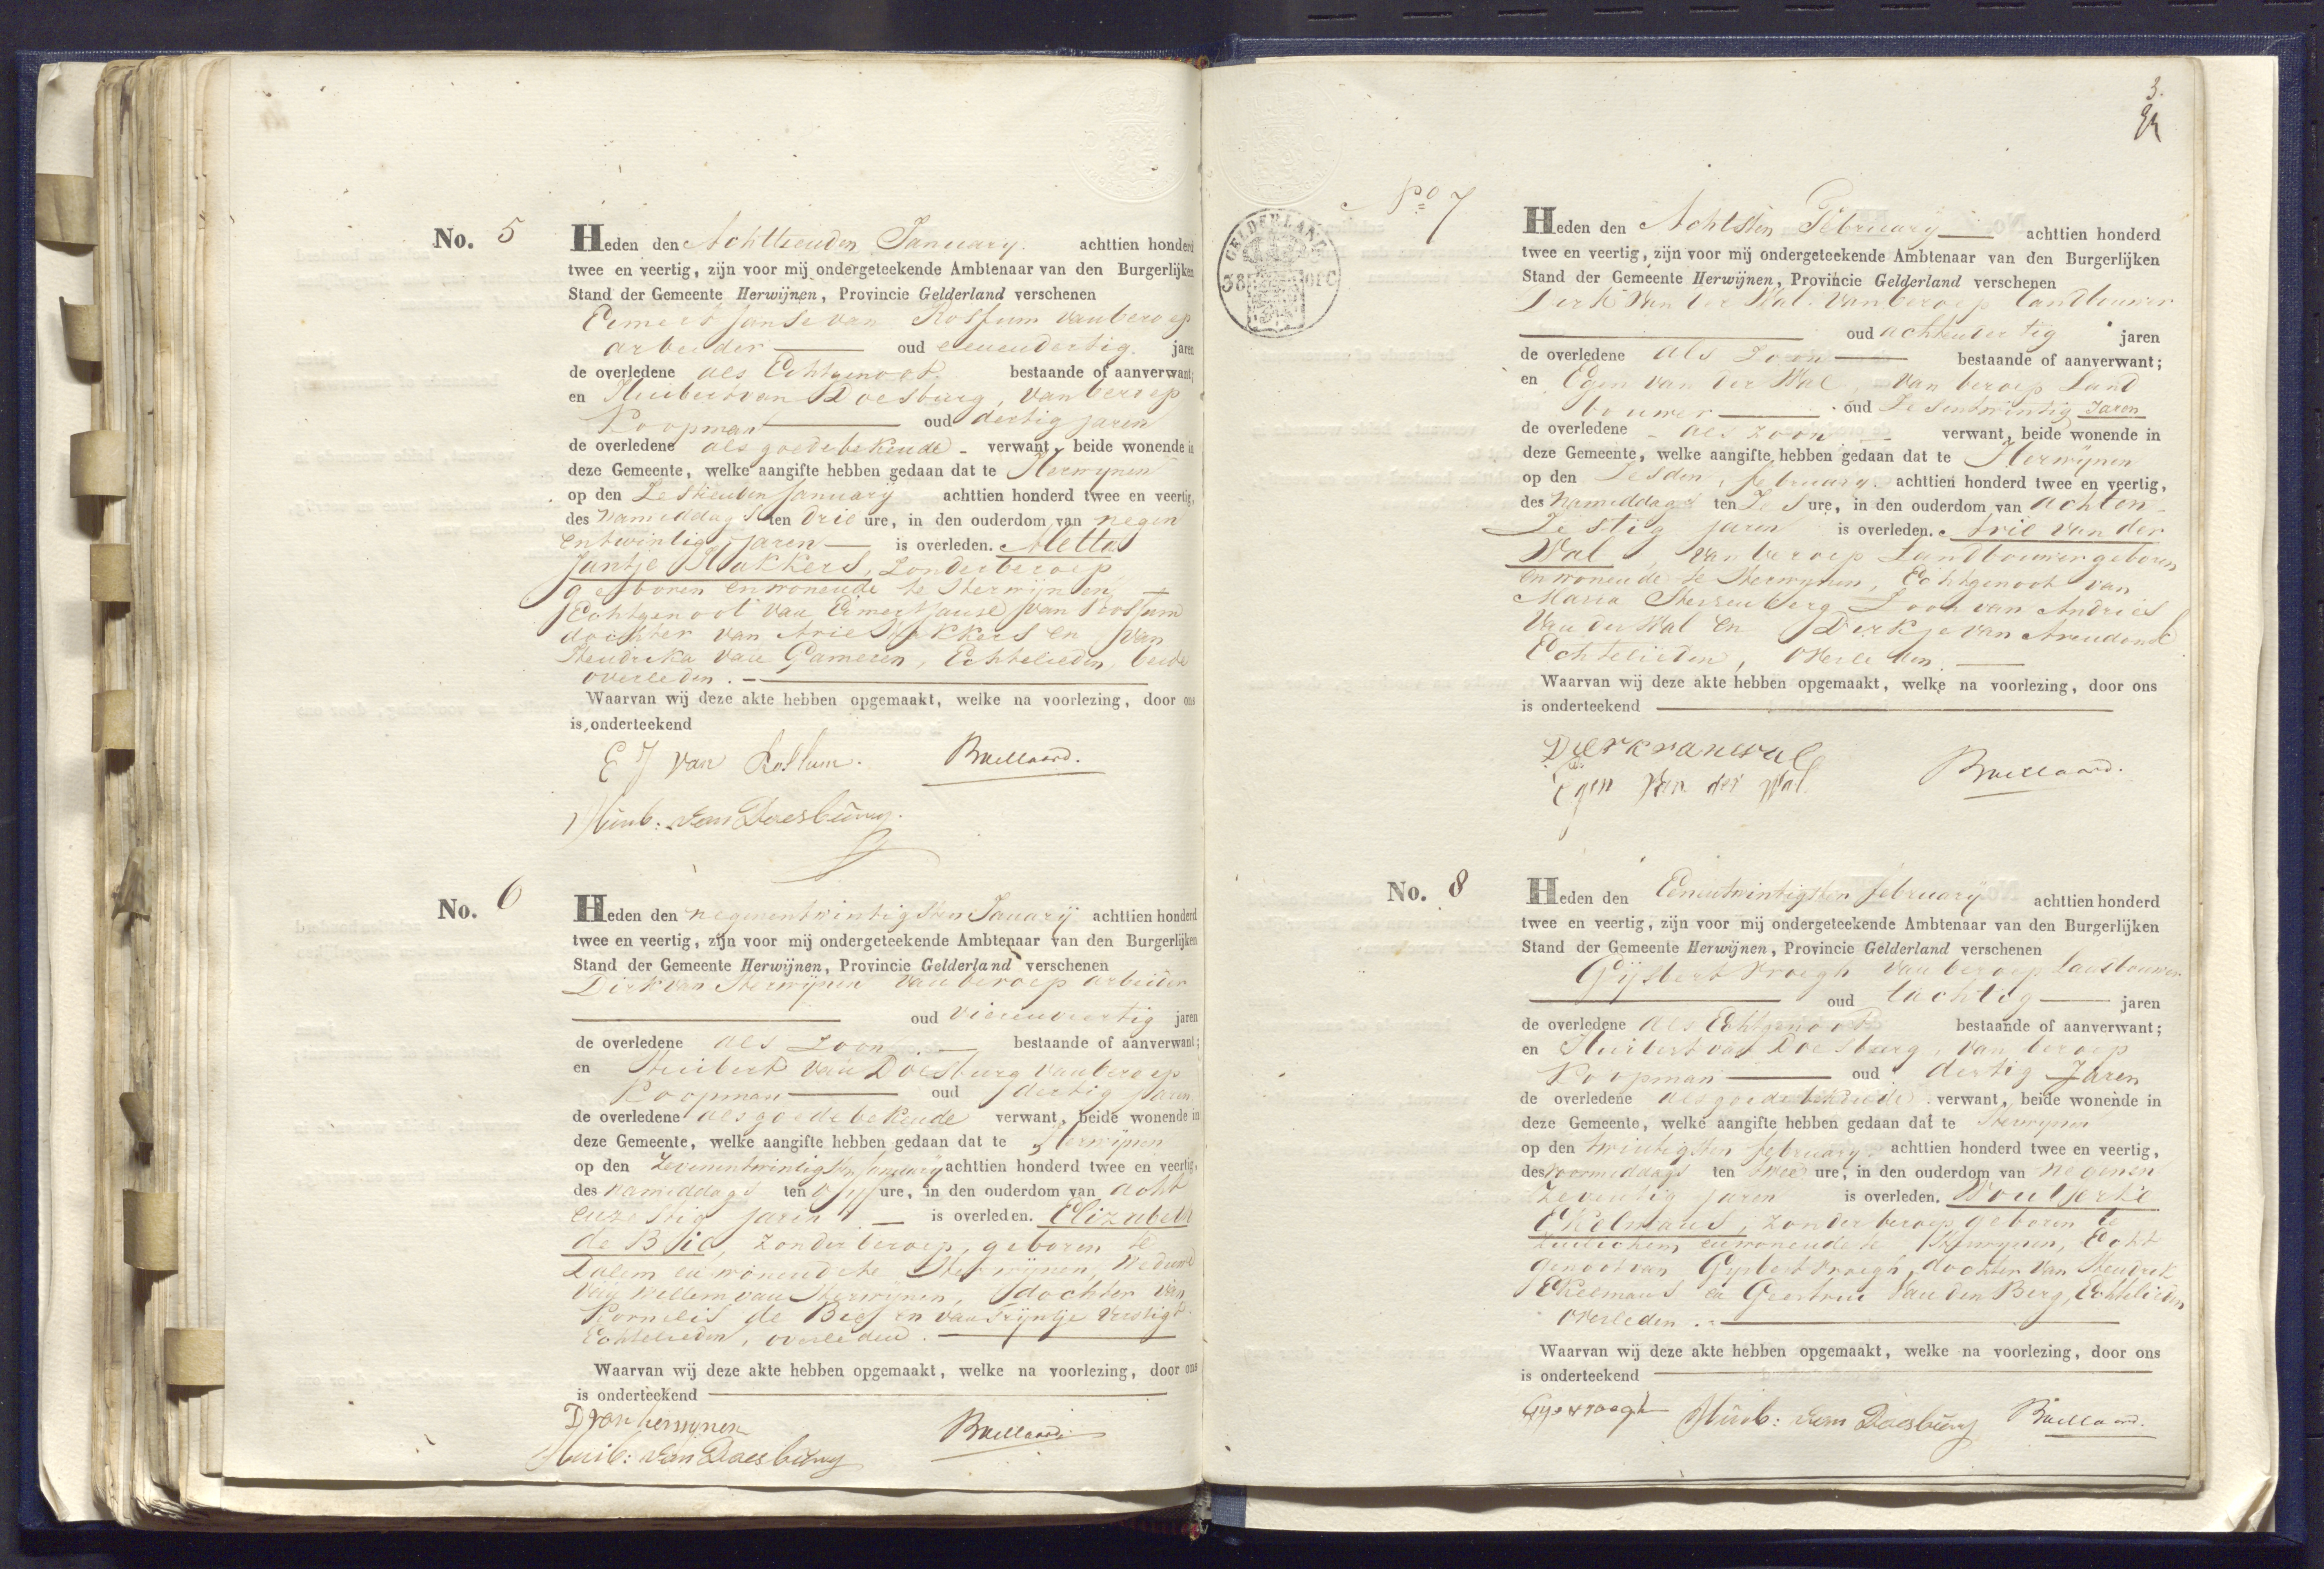 No. 5
Heden den Achttienden January. achttien honderd
twee en veertig, zijn voor mij ondergeteekende Ambtenaar van den Burgerlijken
Stand der Gemeente Herwijnen, Provincie Gelderland verschenen
Eimert Janse van Rossum van beroep
arbeider oud eenendertig jaren
de overledene als Echtgenoot bestaande of aanverwant;
en Huibert van Doesburg, van beroep
Koopman oud dertig jaren
de overledene als goedebekende - verwant, beide wonende in
deze Gemeente, welke aangifte hebben gedaan dat te Herwynen
op den Zestienden January achttien honderd twee en veertig,
des Namiddags ten drie ure, in den ouderdom van negen
entwintig jaren is overleden. Aletta
Jantje Hakkers, zonder beroep
geboren en wonende te Herwijnen,
Echtgenoot van Eimert Janse van Rossum
dochter van Arie Hakkers en van
Hendrika van Gameren, Echtelieden, beide
overleden.
Waarvan wij deze akte hebben opgemaakt, welke na voorlezing, door ons
is onderteekend
E J van Rossum. Baellaard.
Huib: van Doesburg.
No. 6
Heden den negenentwintigsten January achttien honderd
twee en veertig, zijn voor mij ondergeteekende Ambtenaar van den Burgerlijken
Stand der Gemeente Herwijnen, Provincie Gelderland verschenen
Dirk van Herwijnen van beroep arbeider
oud vierenveertig jaren
de overledene als zoon. bestaande of aanverwant;
en Huibert van Doesburg van beroep
Koopman oud dertig jaren
de overledene als goedebekende verwant, beide wonende in
deze Gemeente, welke aangifte hebben gedaan dat te Herwijnen
op den Zevenentwintigsten January achttien honderd twee en veertig,
des namiddags ten vyf ure, in den ouderdom van acht
enzestig jaren is overleden. Elizabeth
de Bie, zonder beroep, geboren te
Dalem en wonende te Herwijnen, Weduwe
van Willem van Herwijnen, dochter van
Kornelis de Bie en van Trijntje
Echtelieden, overleden.
Waarvan wij deze akte hebben opgemaakt, welke na voorlezing, door ons
is onderteekend
D van herwynen Baellaard
Huib: van Doesburg
3.
GELDERLAND
No 7
Heden den Achtsten February achttien honderd
twee en veertig, zijn voor mij ondergeteekende Ambtenaar van den Burgerlijken
Stand der Gemeente Herwijnen, Provincie Gelderland verschenen
Derk van der Wal. van beroep landbouwer
oud achtendertig jaren
de overledene als Zoon bestaande of aanverwant;
en Egen van der Wal, van beroep Land
bouwer oud Zesentwintig Jaren
de overledene - als zoon - verwant, beide wonende in
deze Gemeente, welke aangifte hebben gedaan dat te Herwijnen
op den Zesden february. achttien honderd twee en veertig,
des Namiddags ten Zes ure, in den ouderdom van achten
Zestig jaren is overleden. Arie van der
Wal, van beroep Landbouwer geboren
en wonende te Herwynen, Echtgenoot van
Maria Sterrenberg Zoon van Andries
van der Wal en Dirkje van Arendonk
Echtelieden, overleden.
Waarvan wij deze akte hebben opgemaakt, welke na voorlezing, door ons
is onderteekend
Derk van wal
Egen Van der Wal Baellaard.
No. 8
Heden den Eenentwintigsten february achttien honderd
twee en veertig, zijn voor mij ondergeteekende Ambtenaar van den Burgerlijken
Stand der Gemeente Herwijnen, Provincie Gelderland verschenen
Gijsbert Vroegh van beroep Landbouwer
oud tachtig jaren
de overledene als Echtgenoot bestaande of aanverwant;
en Huibert van Doesburg, van beroep
Koopman oud dertig Jaren
de overledene als goede bekende verwant, beide wonende in
deze Gemeente, welke aangifte hebben gedaan dat te Herwynen
op den twintigsten february. achttien honderd twee en veertig,
des voormiddags ten twee ure, in den ouderdom van negenen
Zeventig jaren is overleden. Wouterke
Ekelmans, zonder beroep geboren te
Zuilichem en wonende te Herwynen, Echt
genoot van Gysbert Vroegh, dochter van Hendrik
Ekelmans en Geertrui van den Berg, Echtelieden
overleden.
Waarvan wij deze akte hebben opgemaakt, welke na voorlezing, door ons
is onderteekend
Huib: van Doesburg Baellaard.